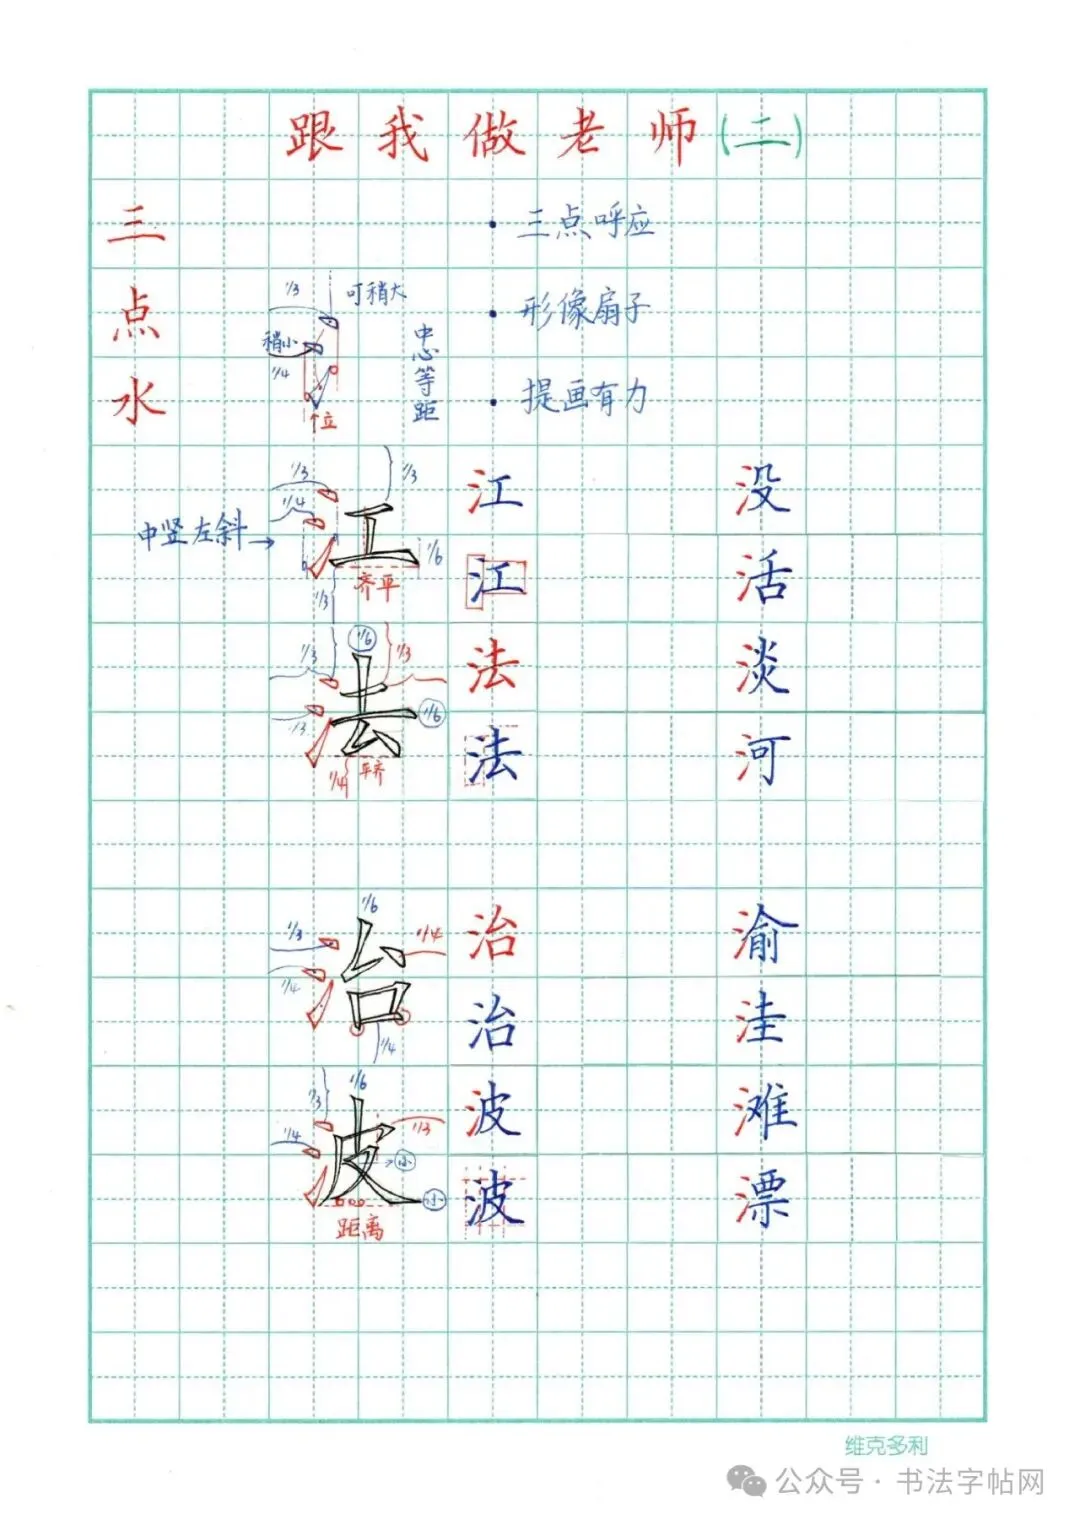 跟我做老师(二)
三点水
· 三点呼应
· 形像扇子
· 提画有力
1/3
可稍大
稍小
1/4
中心等距
个位
1/3
1/3
1/4
中竖左斜→
1/6
齐平
1/3
江
没
江
活
1/6
1/3
1/3
法
淡
1/3
1/6
1/4
平齐
法
河
1/6
1/3
1/4
1/4
治
渝
1/4
治
洼
1/6
1/3
1/4
1/3
小
小
距离
波
滩
波
漂
维克多利
公众号·书法字帖网